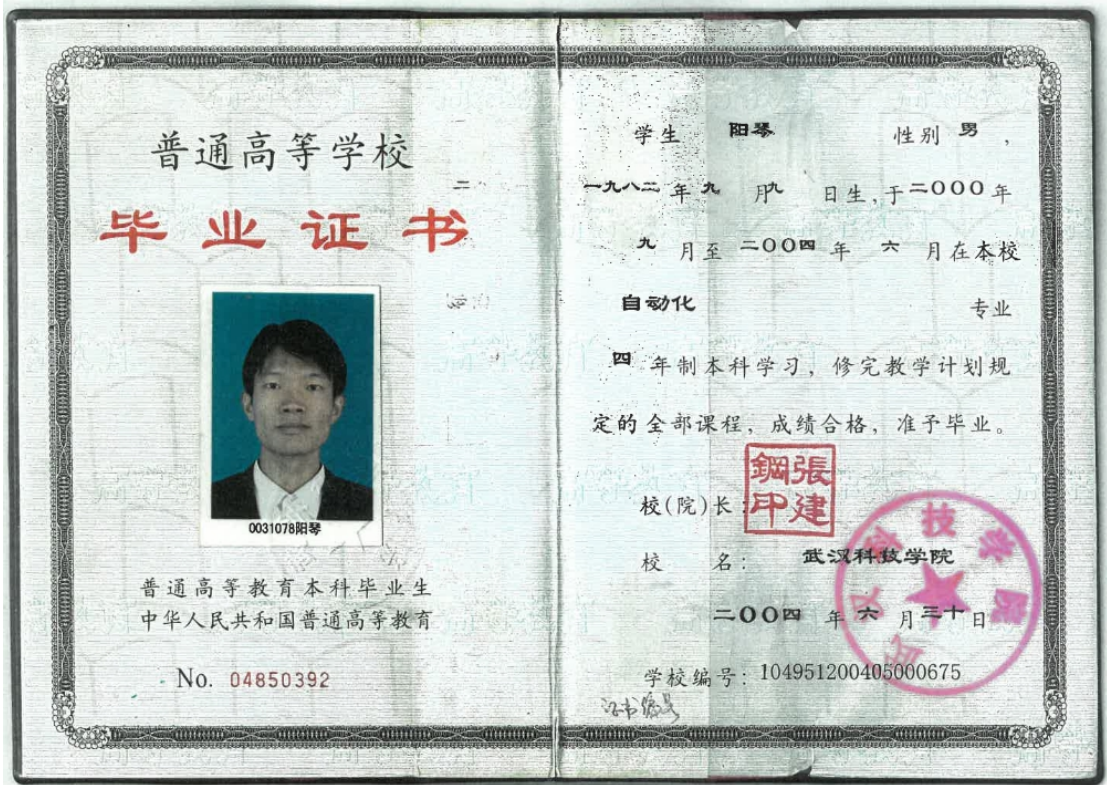 普通高等学校
毕业证书
0031078阳琴
普通高等教育本科毕业生
中华人民共和国普通高等教育
No. 04850392
学生 阳琴 性别 男，
一九八二 年 九 月 九 日生，于 二〇〇〇 年
九 月至 二〇〇四 年 六 月在本校
自动化 专业
四 年制本科学习，修完教学计划规
定的全部课程，成绩合格，准予毕业。
校(院)长：張建鋼印
校 名： 武汉科技学院
二〇〇四 年 六 月 三十 日
武汉科技学院
学校编号：104951200405000675
证书编号